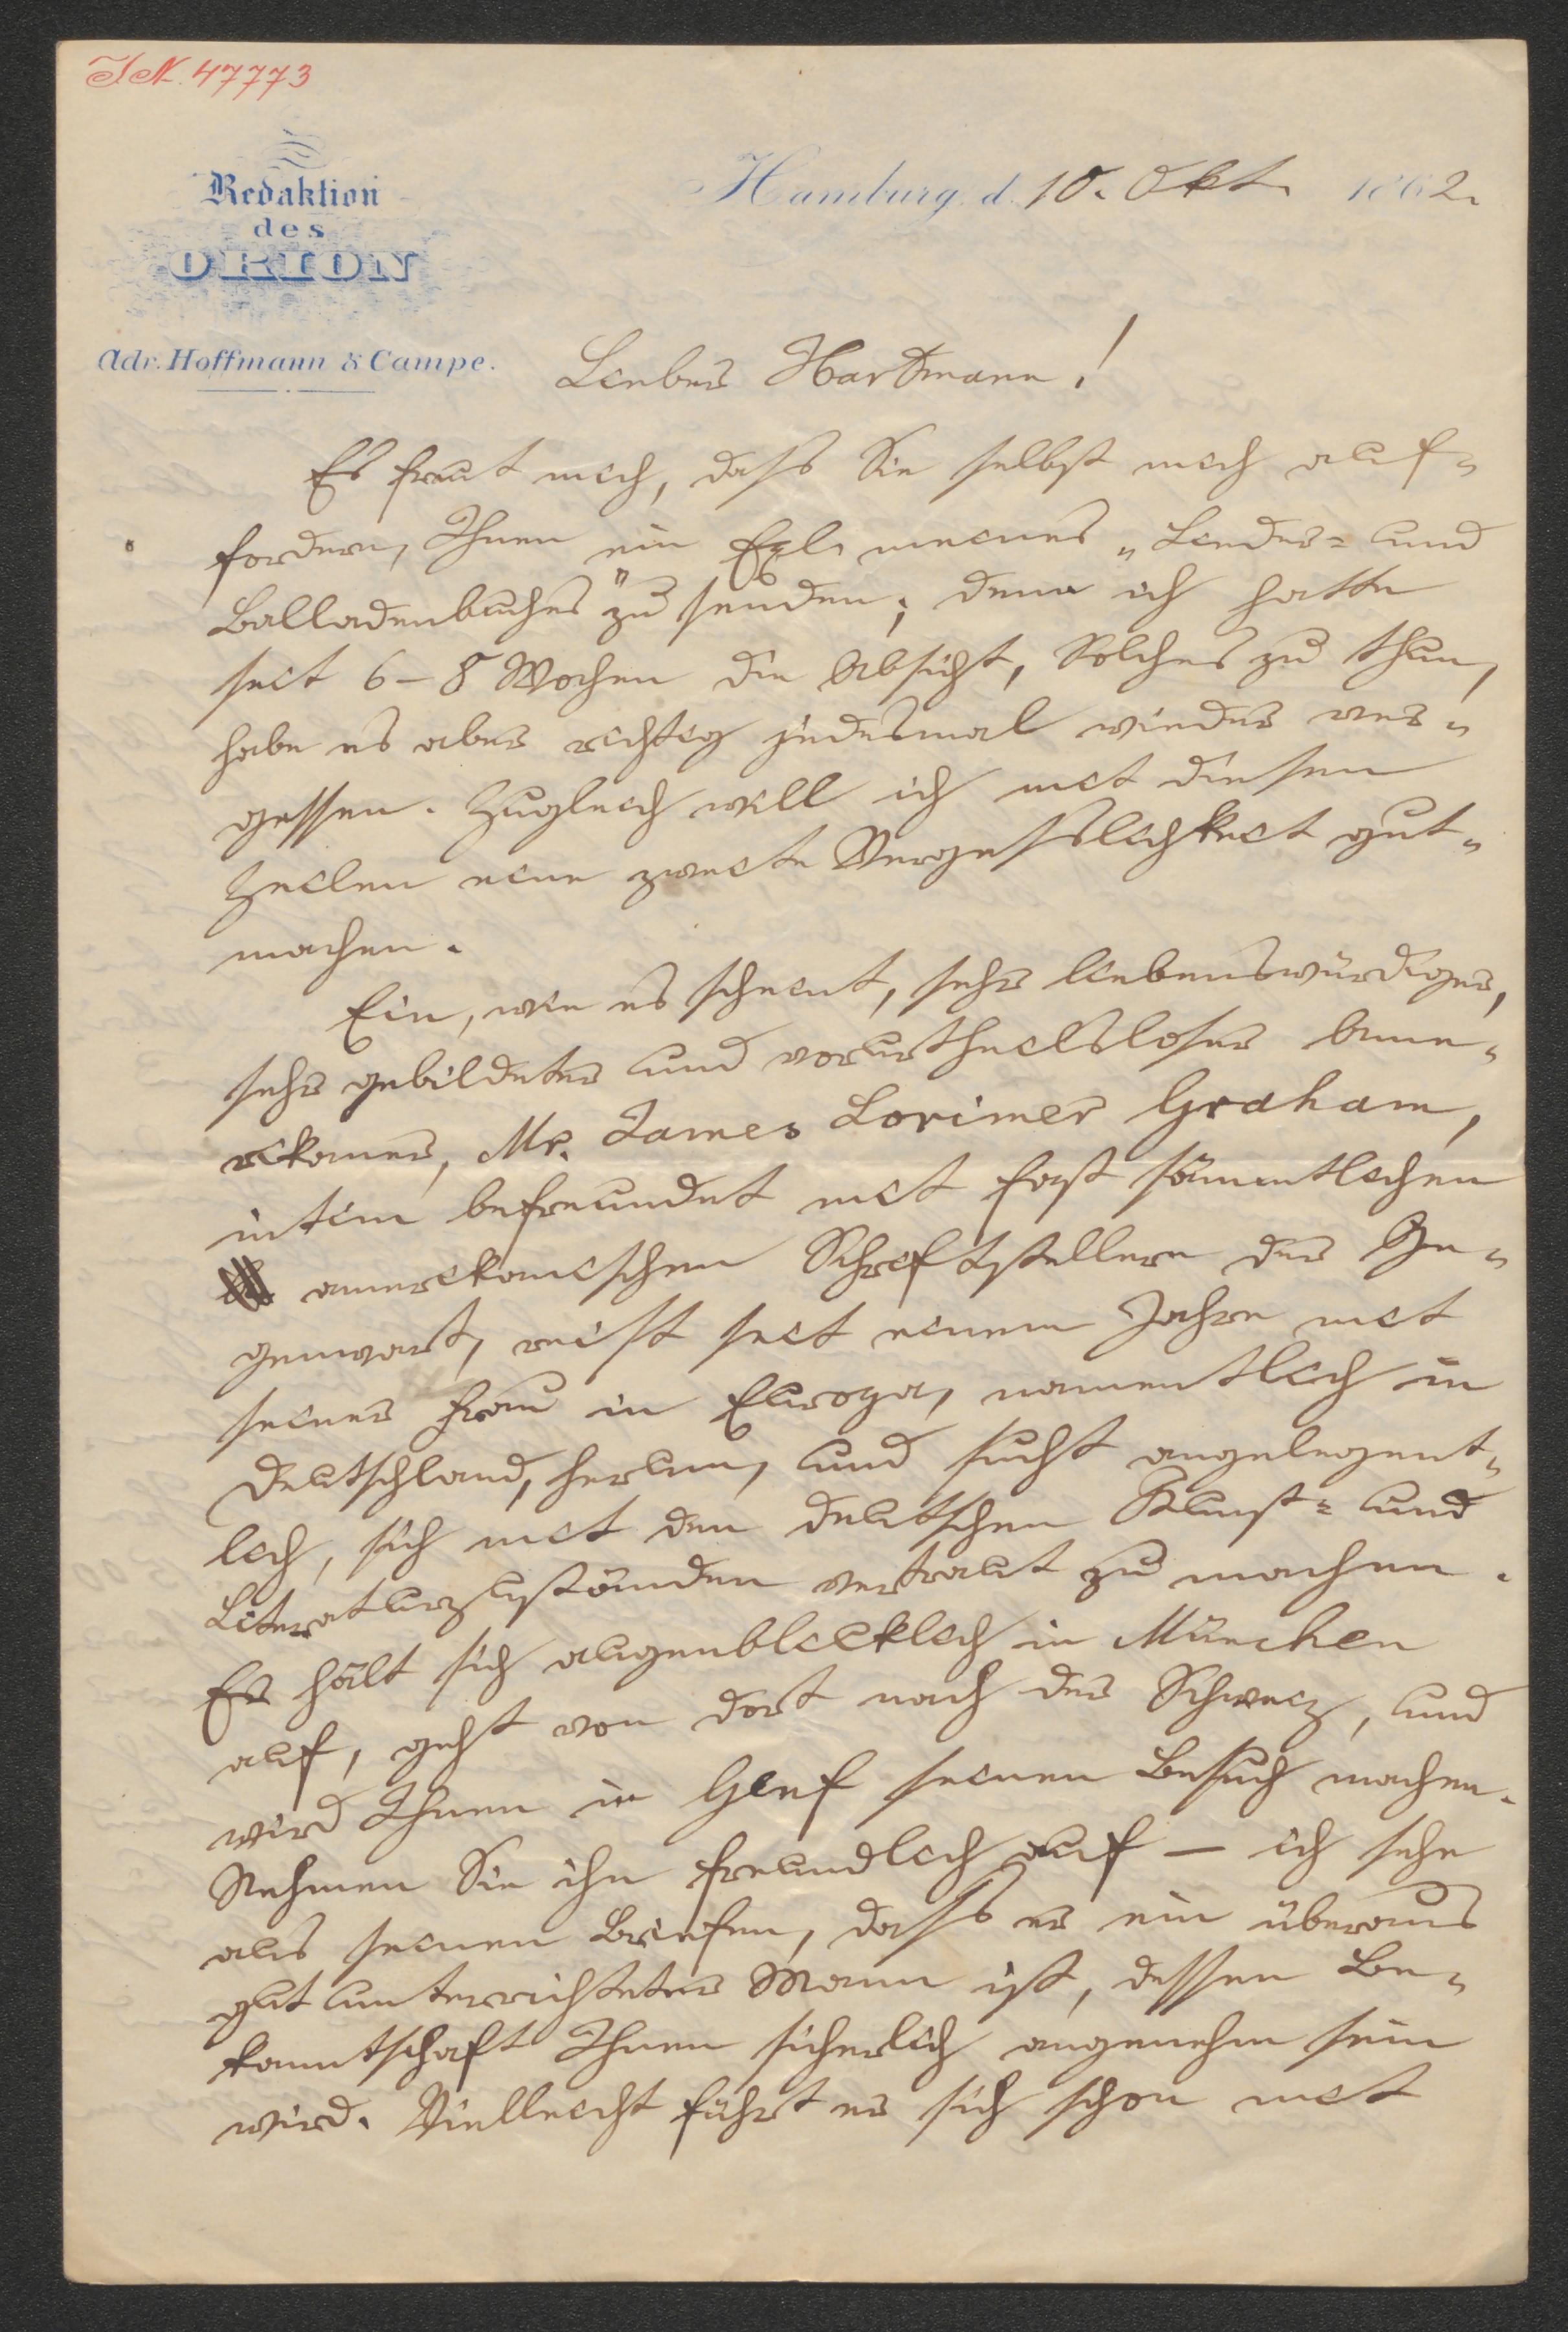 I.N. 47773
Redaktion
des
ORION
Adr. Hoffmann & Campe.
Hamburg, d. 10. Okt. 1862.
Lieber Hartmann!
Es freut mich, dass Sie selbst mich auf-
fordern, Ihnen ein Expl. meines „Lieder- und
Balladenbuches" zu senden; denn ich hatte
seit 6–8 Wochen die Absicht, Solches zu thun,
habe es aber richtig jedesmal wieder ver-
gessen. Zugleich will ich mit diesen
Zeilen eine zweite Vergesslichkeit gut-
machen.
Ein, wie es scheint, sehr liebenswürdiger,
sehr gebildeter und vorurtheilsloser Ame-
rikaner, Mr. James Lorimer Graham,
intim befreundet mit fast sämmtlichen
amerikanischen Schriftstellern der Ge-
genwart, reist seit einem Jahre mit
seiner Frau in Europa, namentlich in
Deutschland, herum, und sucht angelegent-
lich, sich mit den deutschen Kunst- und
Literaturzuständen vertraut zu machen.
Er hält sich augenblicklich in München
auf, geht von dort nach der Schweiz, und
wird Ihnen in Genf seinen Besuch machen.
Nehmen Sie ihn freundlich auf — ich sehe
aus seinen Briefen, dass er ein überaus
gut unterrichteter Mann ist, dessen Be-
kanntschaft Ihnen sicherlich angenehm sein
wird. Vielleicht führt er sich schon mit